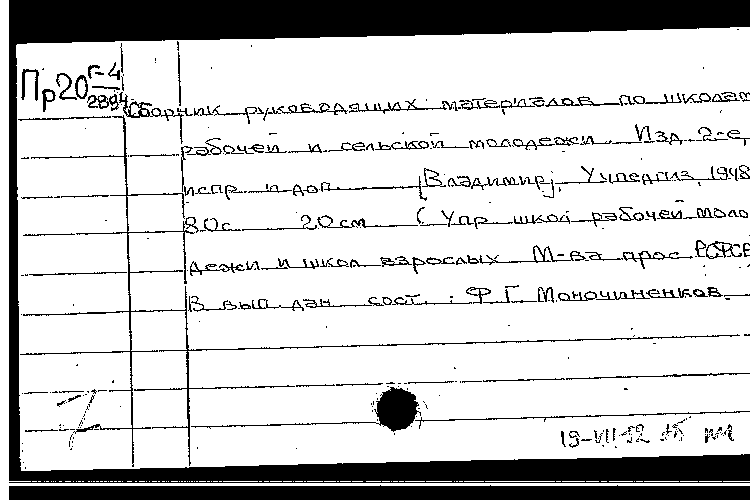 Пр20 Г-4
2894
Сборник руководящих материалов по школам
рабочей и сельской молодежи. Изд. 2-е,
испр. и доп. [Владимир], Учпедгиз, 1948
80с. 20см (Упр. школ рабочей моло
дежи и школ взрослых М-ва прос. РСФСР
В вып. дан. сост.: Ф.Г.
19-VII-52